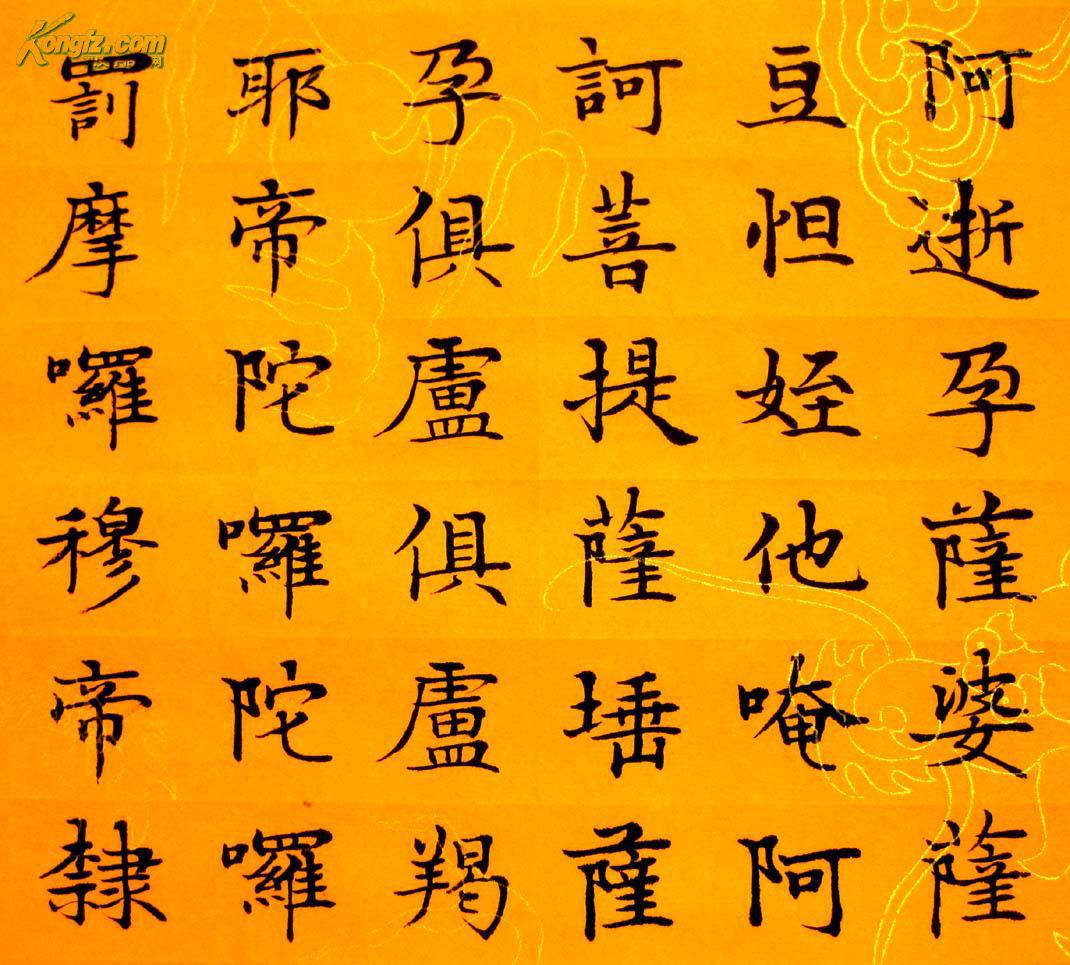 Kongfz.com
阿逝孕薩婆薩
豆怛姪他唵阿
訶菩提薩埵薩
孕俱盧俱盧羯
耶帝陀囉陀囉
罰摩囉穆帝隸